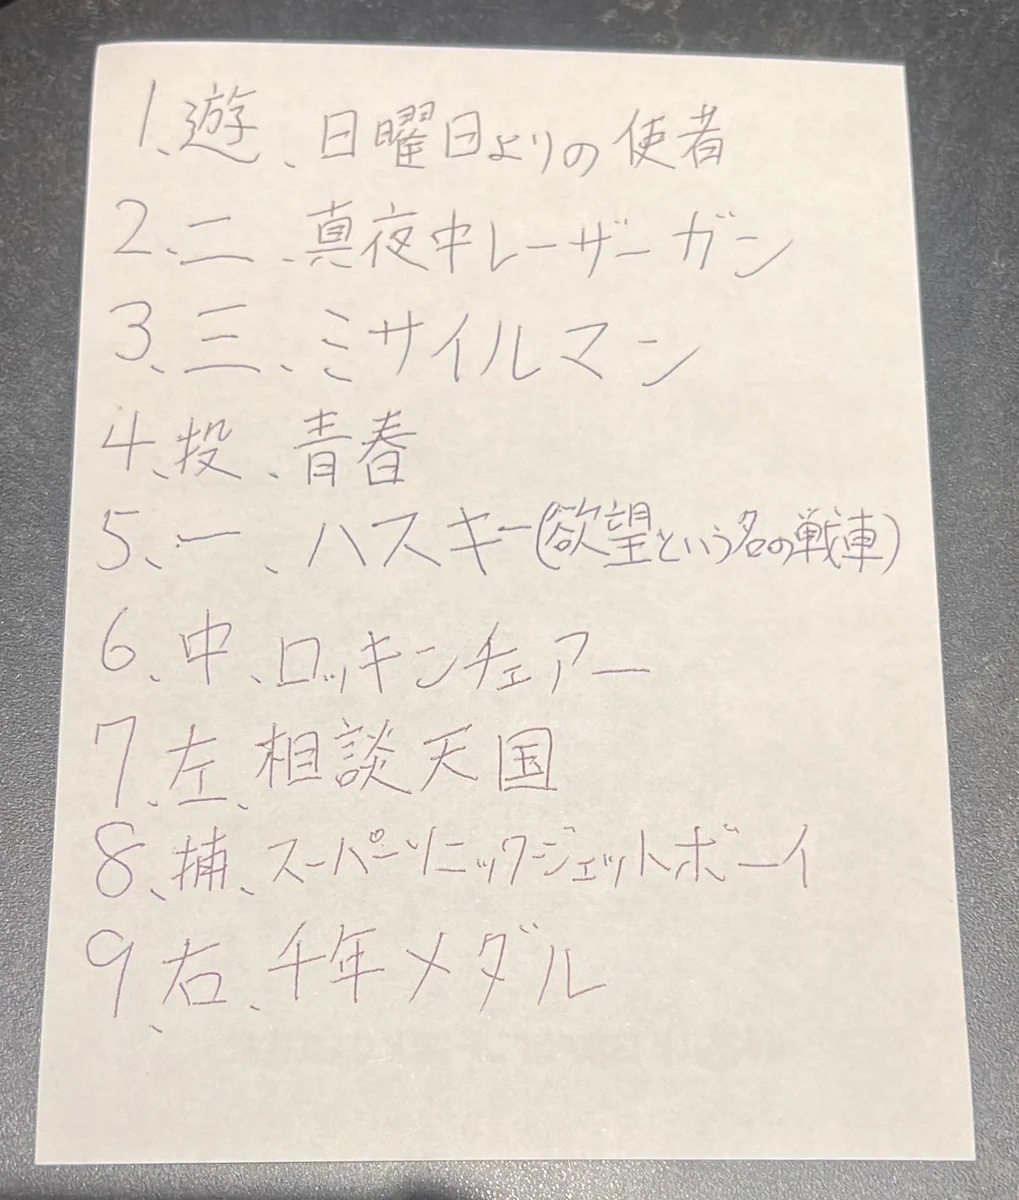 1、遊、日曜日よりの使者
2、二、真夜中レーザーガン
3、三、ミサイルマン
4、投、青春
5、一、ハスキー(欲望という名の戦車)
6、中、ロッキンチェアー
7、左、相談天国
8、捕、スーパーソニックジェットボーイ
9、右、千年メダル